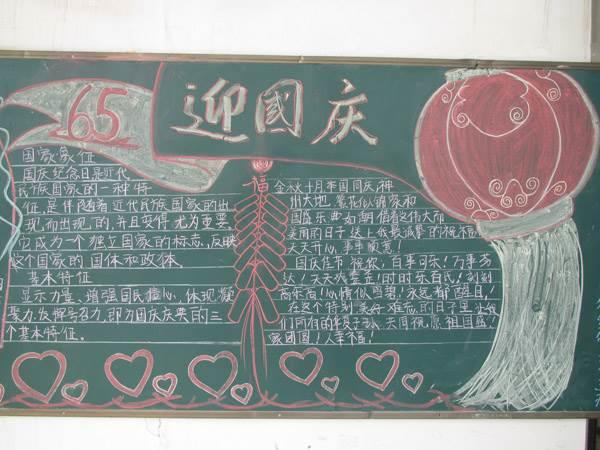 65
迎國庆
国家象征
国庆纪念日是近代
民族国家的一种特
征,是伴随着近代民族国家的出
现而出现的,并且变得尤为重要
它成为一个独立国家的标志,反映
这个国家的国体和政体。
基本特征
显示力量、增强国民信心,体现凝
聚力,发挥号召力,即为国庆庆典的三
个基本特征。
福
金秋十月来国同庆神
州大地 繁花似锦祥和
国盛乐曲如潮借这伟大而
美丽的日子送上我最诚挚的祝福愿
天天开心,事事顺意!
国庆佳节 祝你,百事可乐!万事芬
达!天天娃哈哈!时时乐百氏!刻刻
高乐高!心情似雪碧!永远都醒目!
在这个特别美好难忘的日子里让我
们所有的华夏子孙,天同祝愿祖国盛
家团圆!人幸福!